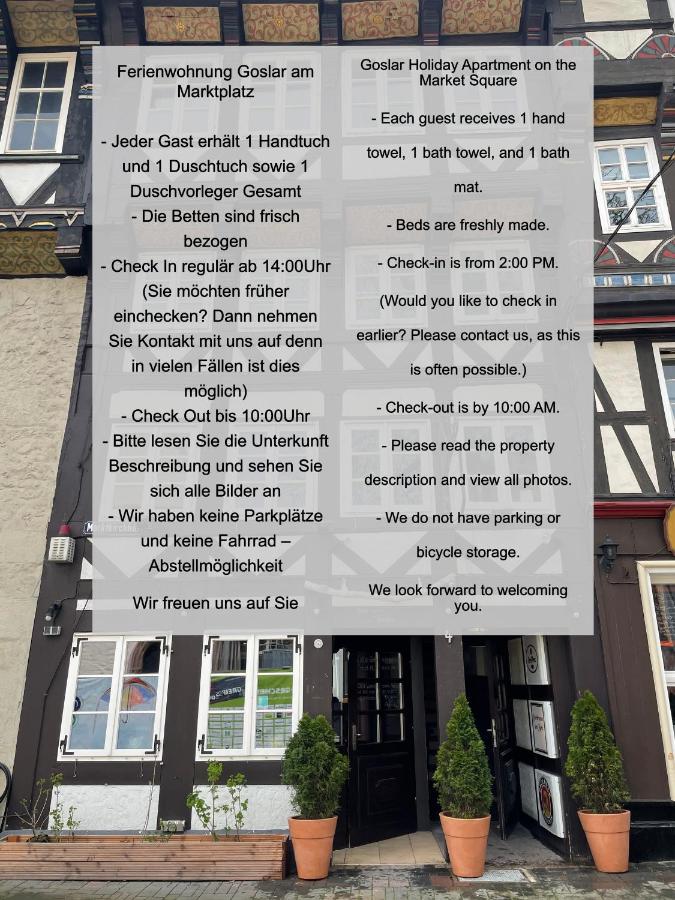 Ferienwohnung Goslar am
Marktplatz
- Jeder Gast erhält 1 Handtuch
und 1 Duschtuch sowie 1
Duschvorleger Gesamt
- Die Betten sind frisch
bezogen
- Check In regulär ab 14:00Uhr
(Sie möchten früher
einchecken? Dann nehmen
Sie Kontakt mit uns auf denn
in vielen Fällen ist dies
möglich)
- Check Out bis 10:00Uhr
- Bitte lesen Sie die Unterkunft
Beschreibung und sehen Sie
sich alle Bilder an
- Wir haben keine Parkplätze
und keine Fahrrad –
Abstellmöglichkeit
Wir freuen uns auf Sie
Goslar Holiday Apartment on the
Market Square
- Each guest receives 1 hand
towel, 1 bath towel, and 1 bath
mat.
- Beds are freshly made.
- Check-in is from 2:00 PM.
(Would you like to check in
earlier? Please contact us, as this
is often possible.)
- Check-out is by 10:00 AM.
- Please read the property
description and view all photos.
- We do not have parking or
bicycle storage.
We look forward to welcoming
you.